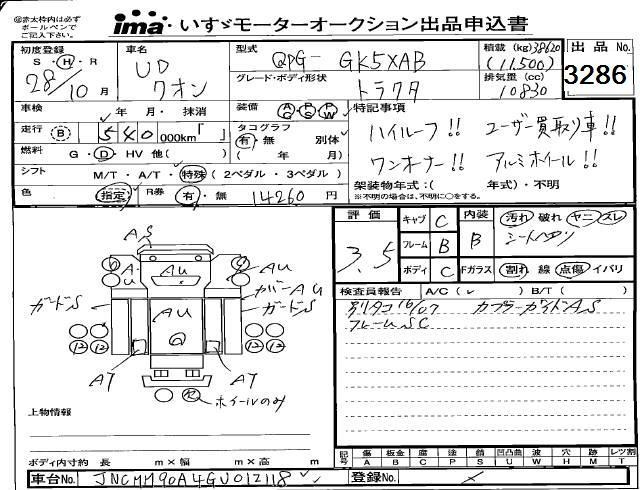 ◎赤太枠内は必ず
ボールペンで
ご記入下さい。
ima・いすゞモーターオークション出品申込書
初度登録
S・H・R
28/10月
車名
UD
クオン
型式
QPG-GK5XAB
グレード・ボディ形状
トラクタ
積載(kg)38620
(11,500)
排気量(cc)
10830
出品No.
3286
車検
年 月・抹消
装備 AC PS PW
特記事項
ハイルーフ!! ユーザー買取り車!!
ワンオーナー!! アルミホイール!!
走行 B 540 000km「 」
タコグラフ
有・無 別体
( 年 月)
燃料 G・D・HV 他( )
シフト M/T・A/T・特殊(2ペダル・3ペダル)
架装物年式:( 年式)・不明
※不明の場合は、不明に○をする。
色 指定 R券 有・無 14260円
評価
3.5
キャブ C
フレーム B
ボディ C
内装
B
汚れ 破れ ヤニ スレ
Fガラス 割れ 線 点傷 イパリ
検査員報告 A/C( ✓ ) B/T( )
別タコ16/07 カプラーガイドAS
フレームSC
AS
A
AU
A
AU
カバーAU
ガードS
AU
ガードS
12 12
12 12
A7
A7
ホイールのみ
上物情報
ボディ内寸約 長 m×幅 m×高 m
記号
傷 板金 腐 塗 頭 凹凸曲 波 穴 跡 レツ割
A B C P S U W H M T
車台No. JNCMM90A4GU012118
登録No.